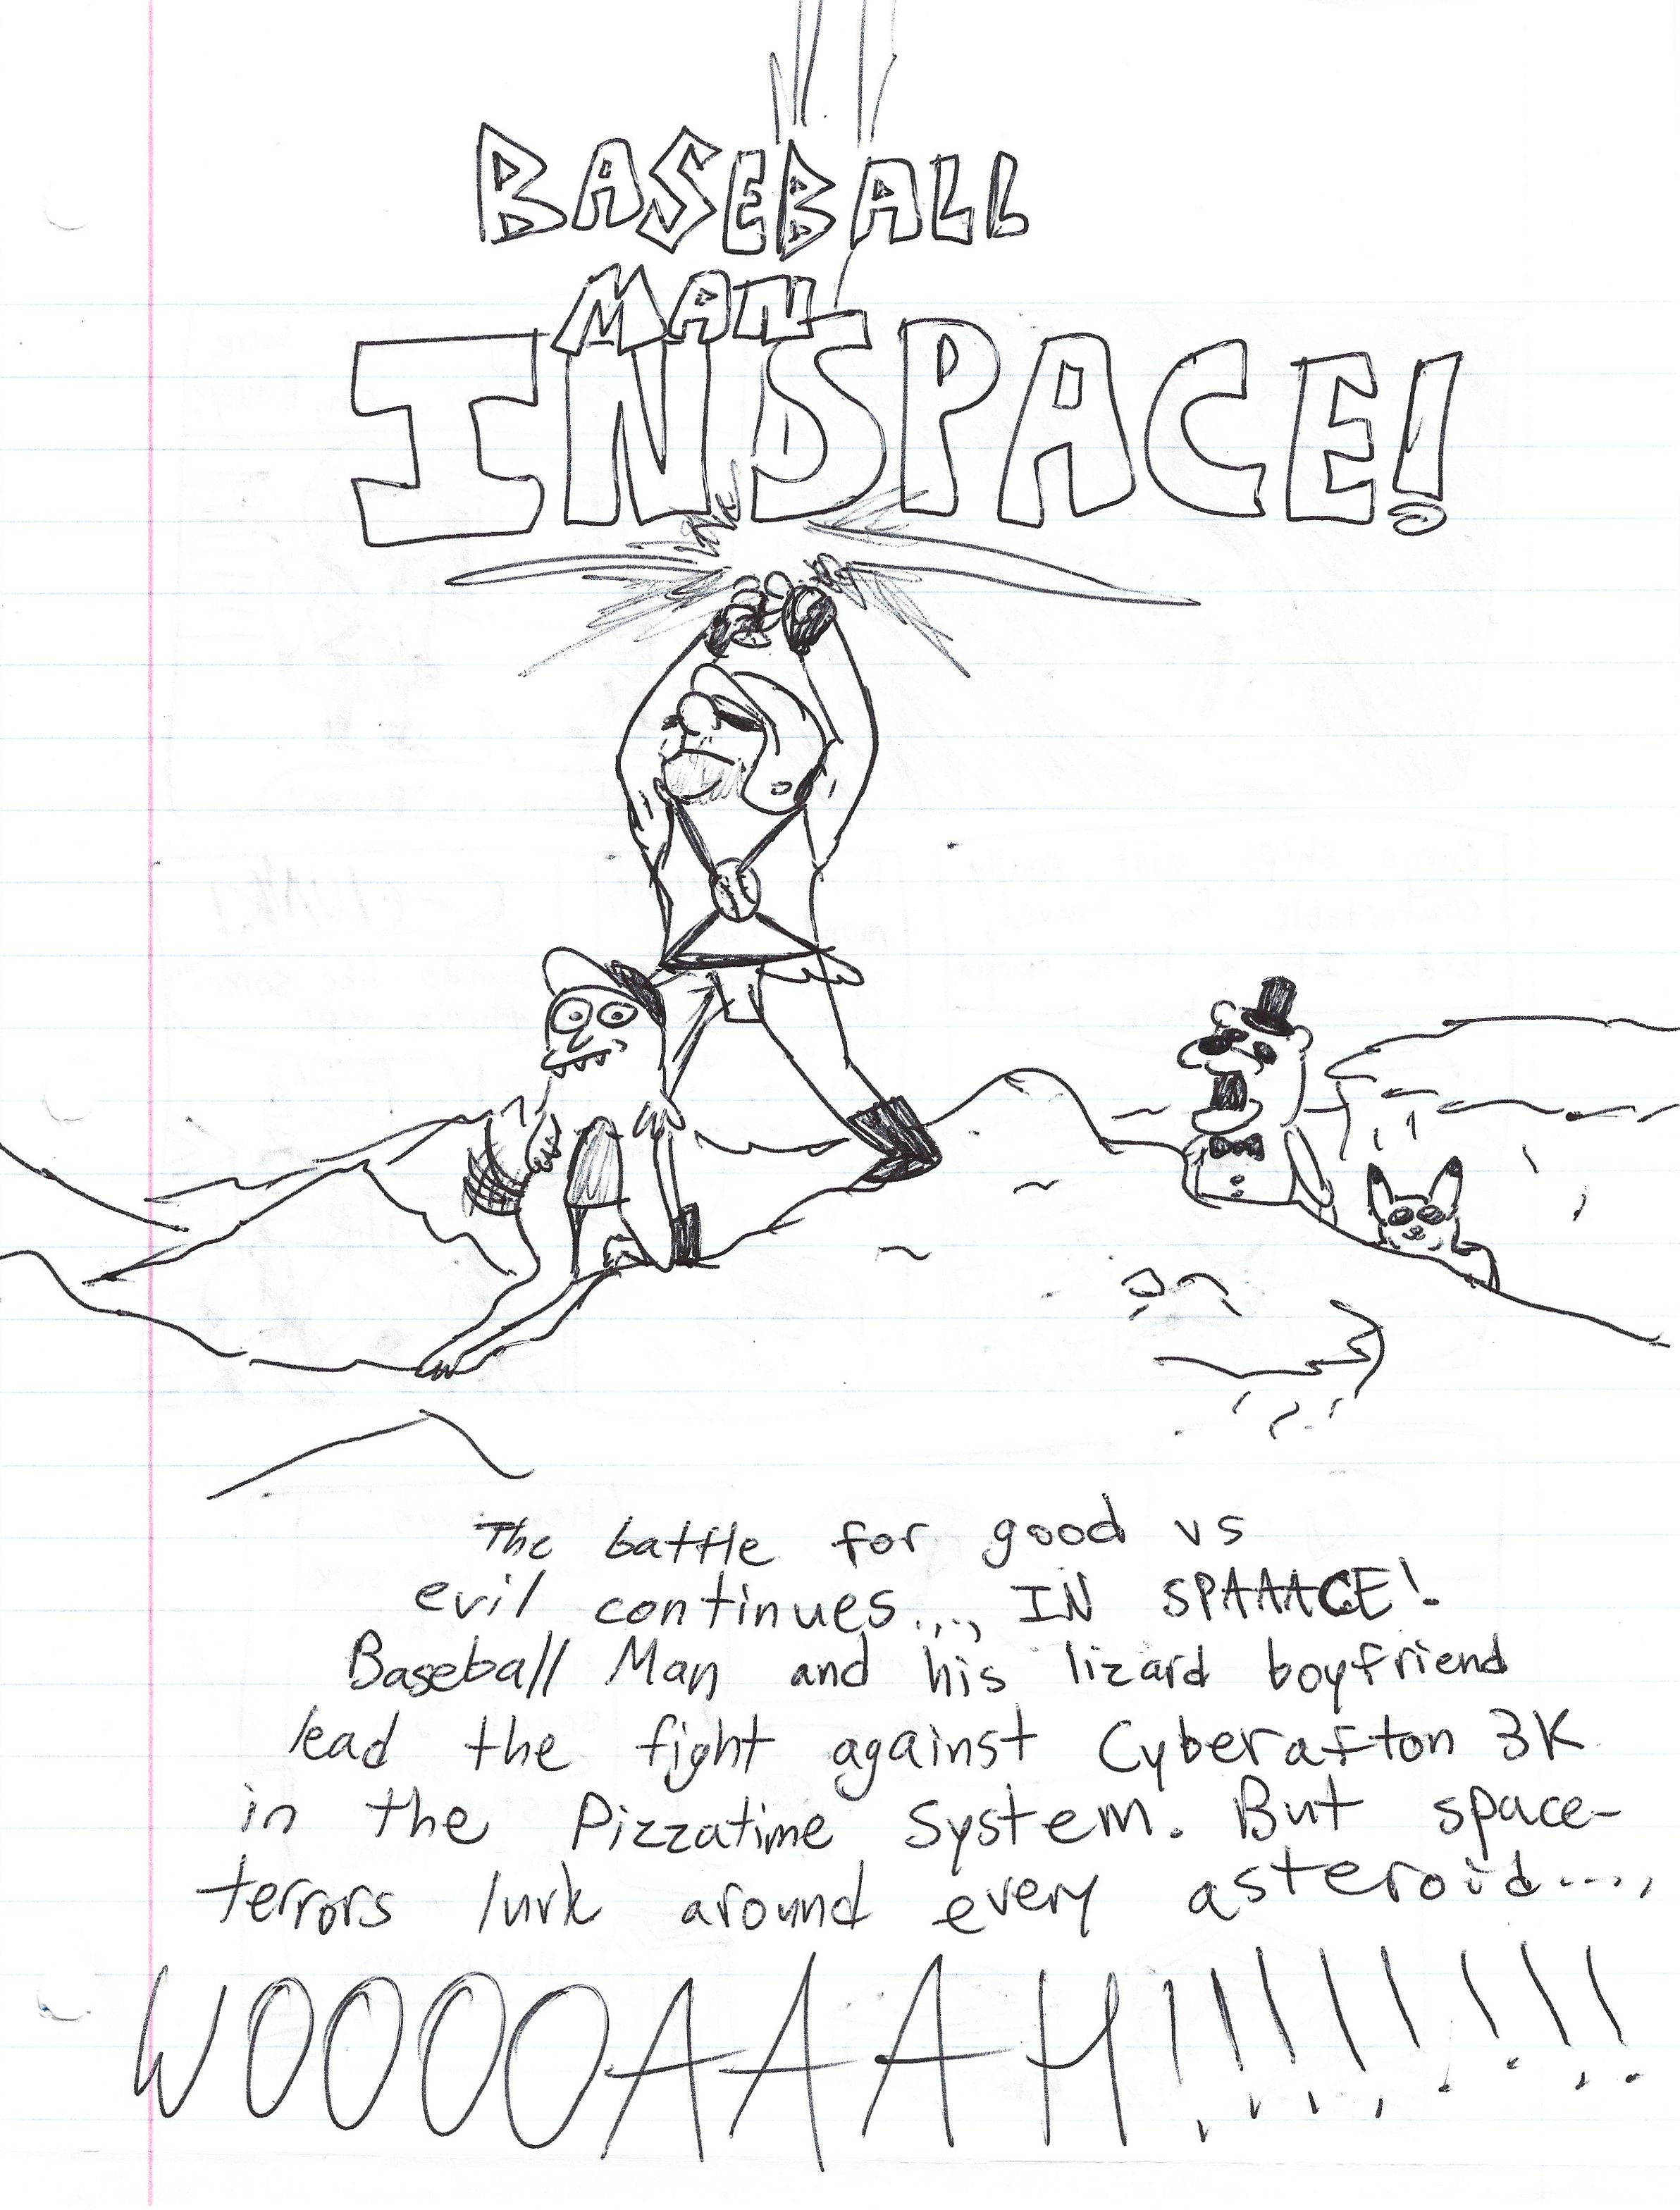 BASEBALL
MAN
IN SPACE!
The battle for good vs
evil continues..., IN SPAAACE!
Baseball Man and his lizard boyfriend
lead the fight against Cyberafton 3K
in the Pizzatime System. But space-
terrors lurk around every asteroid...,
WOOOOAAAH!!!!!!!!